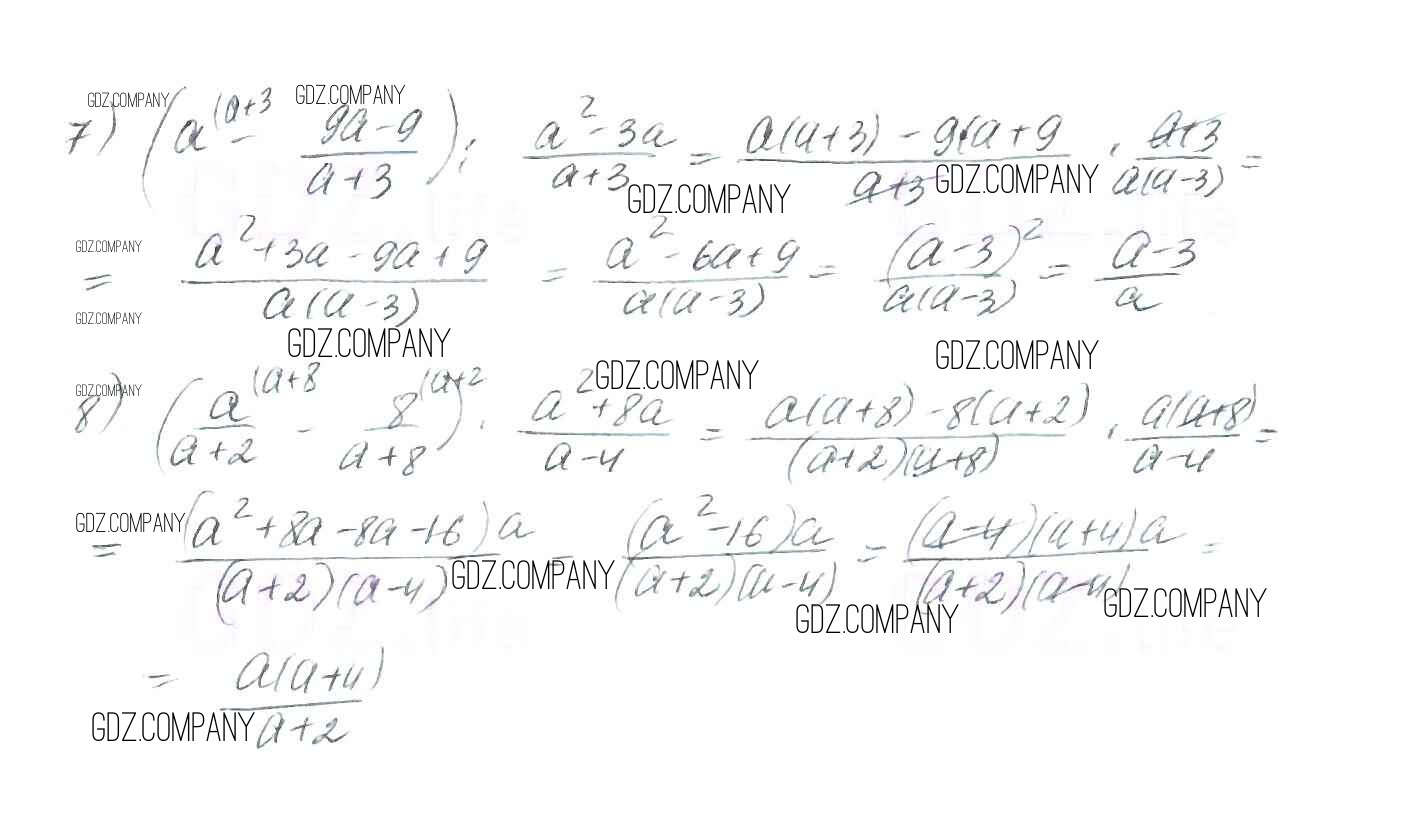 GDZ.COMPANY GDZ.COMPANY
7) (a^(a+3 - (9a-9)/(a+3)) : (a²-3a)/(a+3) = (a(a+3) - 9a+9)/(a+3) · (a+3)/(a(a-3)) =
GDZ.COMPANY GDZ.COMPANY
GDZ.COMPANY
= (a²+3a-9a+9)/(a(a-3)) = (a²-6a+9)/(a(a-3)) = (a-3)²/(a(a-3)) = (a-3)/a
GDZ.COMPANY
GDZ.COMPANY GDZ.COMPANY
GDZ.COMPANY GDZ.COMPANY
8) (a^(a+8/(a+2) - 8^(a+2/(a+8)) · (a²+8a)/(a-4) = (a(a+8) - 8(a+2))/((a+2)(a+8)) · (a(a+8))/(a-4) =
GDZ.COMPANY
= ((a²+8a-8a-16)a)/((a+2)(a-4)) = ((a²-16)a)/((a+2)(a-4)) = ((a-4)(a+4)a)/((a+2)(a-4)) =
GDZ.COMPANY GDZ.COMPANY GDZ.COMPANY
= (a(a+4))/(a+2)
GDZ.COMPANY